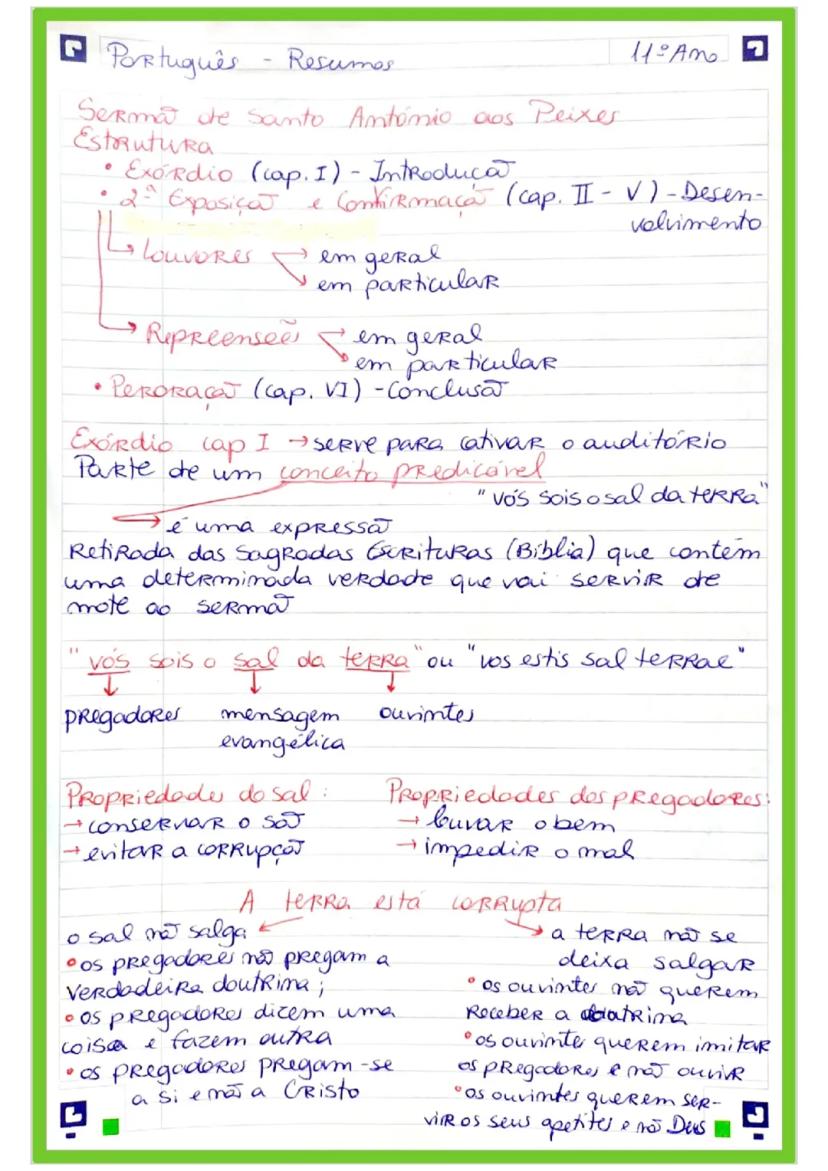 Português - Resumos 11º Ano
Sermão de Santo António aos Peixes
Estrutura
• Exórdio (cap. I) - Introdução
• 2ª Exposição e Confirmação (cap. II - V) - Desen-
volvimento
↳ Louvores → em geral
↘ em particular
↳ Repreensões → em geral
↘ em particular
• Peroração (cap. VI) - Conclusão
Exórdio cap I → serve para cativar o auditório
Parte de um conceito predicável
"vós sois o sal da terra"
→ é uma expressão
Retirada das Sagradas Escrituras (Bíblia) que contém
uma determinada verdade que vai servir de
mote ao sermão
"vós sois o sal da terra" ou "vos estis sal terrae"
↓ ↓ ↓
pregadores mensagem ouvintes
evangélica
Propriedades do sal: Propriedades dos pregadores:
→ conservar o são → louvar o bem
→ evitar a corrupção → impedir o mal
A terra está corrupta
o sal não salga
• os pregadores não pregam a
verdadeira doutrina;
• os pregadores dizem uma
coisa e fazem outra
• os pregadores pregam-se
a si e não a Cristo
→ a terra não se
deixa salgar
• os ouvintes não querem
receber a doutrina
• os ouvinte querem imitar
os pregadores e não ouvir
• os ouvintes querem ser-
vir os seus apetites e não Deus